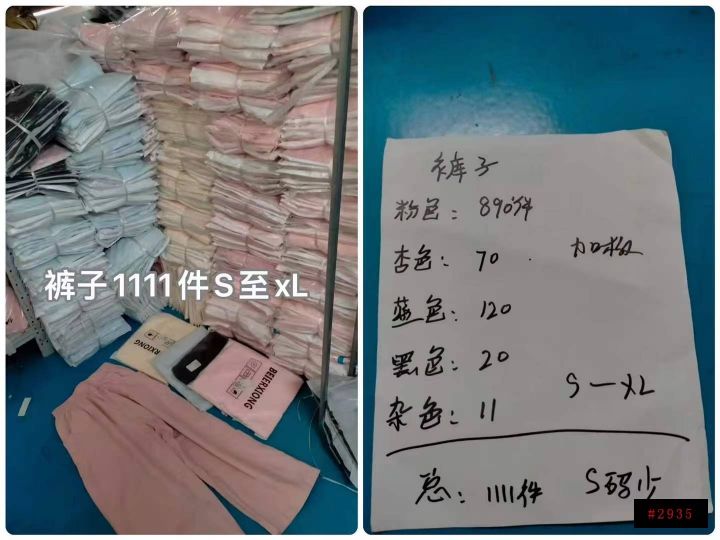 裤子1111件S至xL
RXIONG
BEIERXIONG
裤子
粉色：890件
杏色：70
加板
蓝色：120
黑色：20
S—XL
杂色：11
总：1111件 S码少
#2935